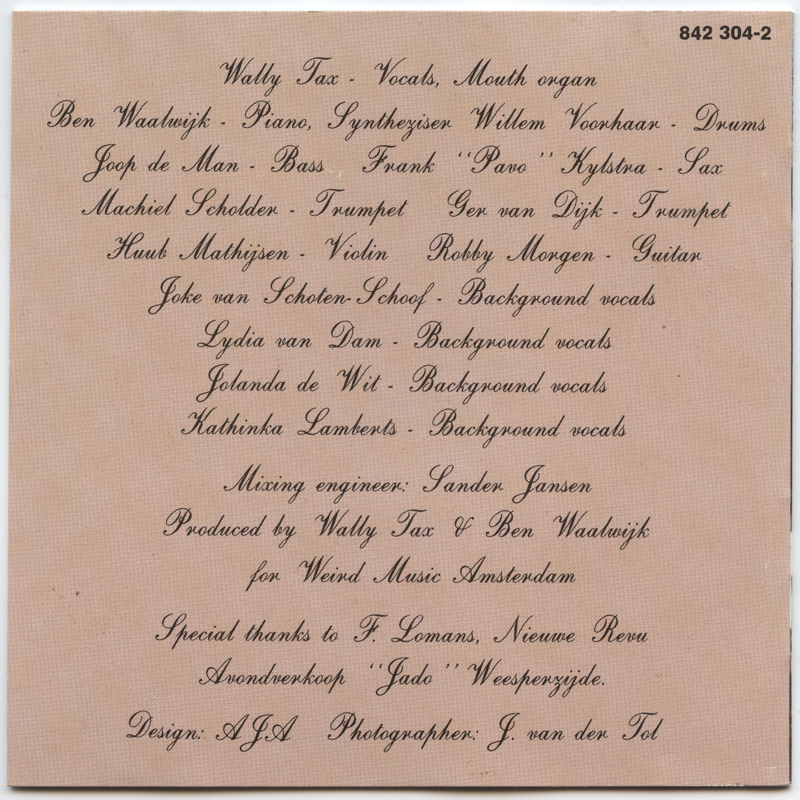 842 304-2
Wally Tax - Vocals, Mouth organ
Ben Waalwijk - Piano, Syntheziser Willem Voorhaar - Drums
Joop de Man - Bass Frank "Pavo" Kylstra - Sax
Machiel Scholder - Trumpet Ger van Dijk - Trumpet
Huub Mathijsen - Violin Robby Morgen - Guitar
Joke van Schoten-Schoof - Background vocals
Lydia van Dam - Background vocals
Jolanda de Wit - Background vocals
Kathinka Lamberts - Background vocals
Mixing engineer: Sander Jansen
Produced by Wally Tax & Ben Waalwijk
for Weird Music Amsterdam
Special thanks to F. Lomans, Nieuwe Revu
Avondverkoop "Jado" Weesperzijde.
Design: AJA Photographer: J. van der Tol